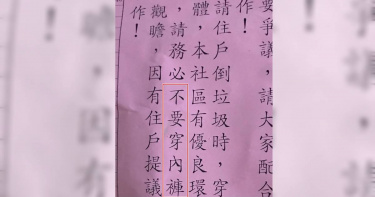 要爭議，請大家配合
作！
請住戶倒垃圾時，穿
體，本社區有優良環
，請務必不要穿內褲
觀瞻，因有住戶提議
作！